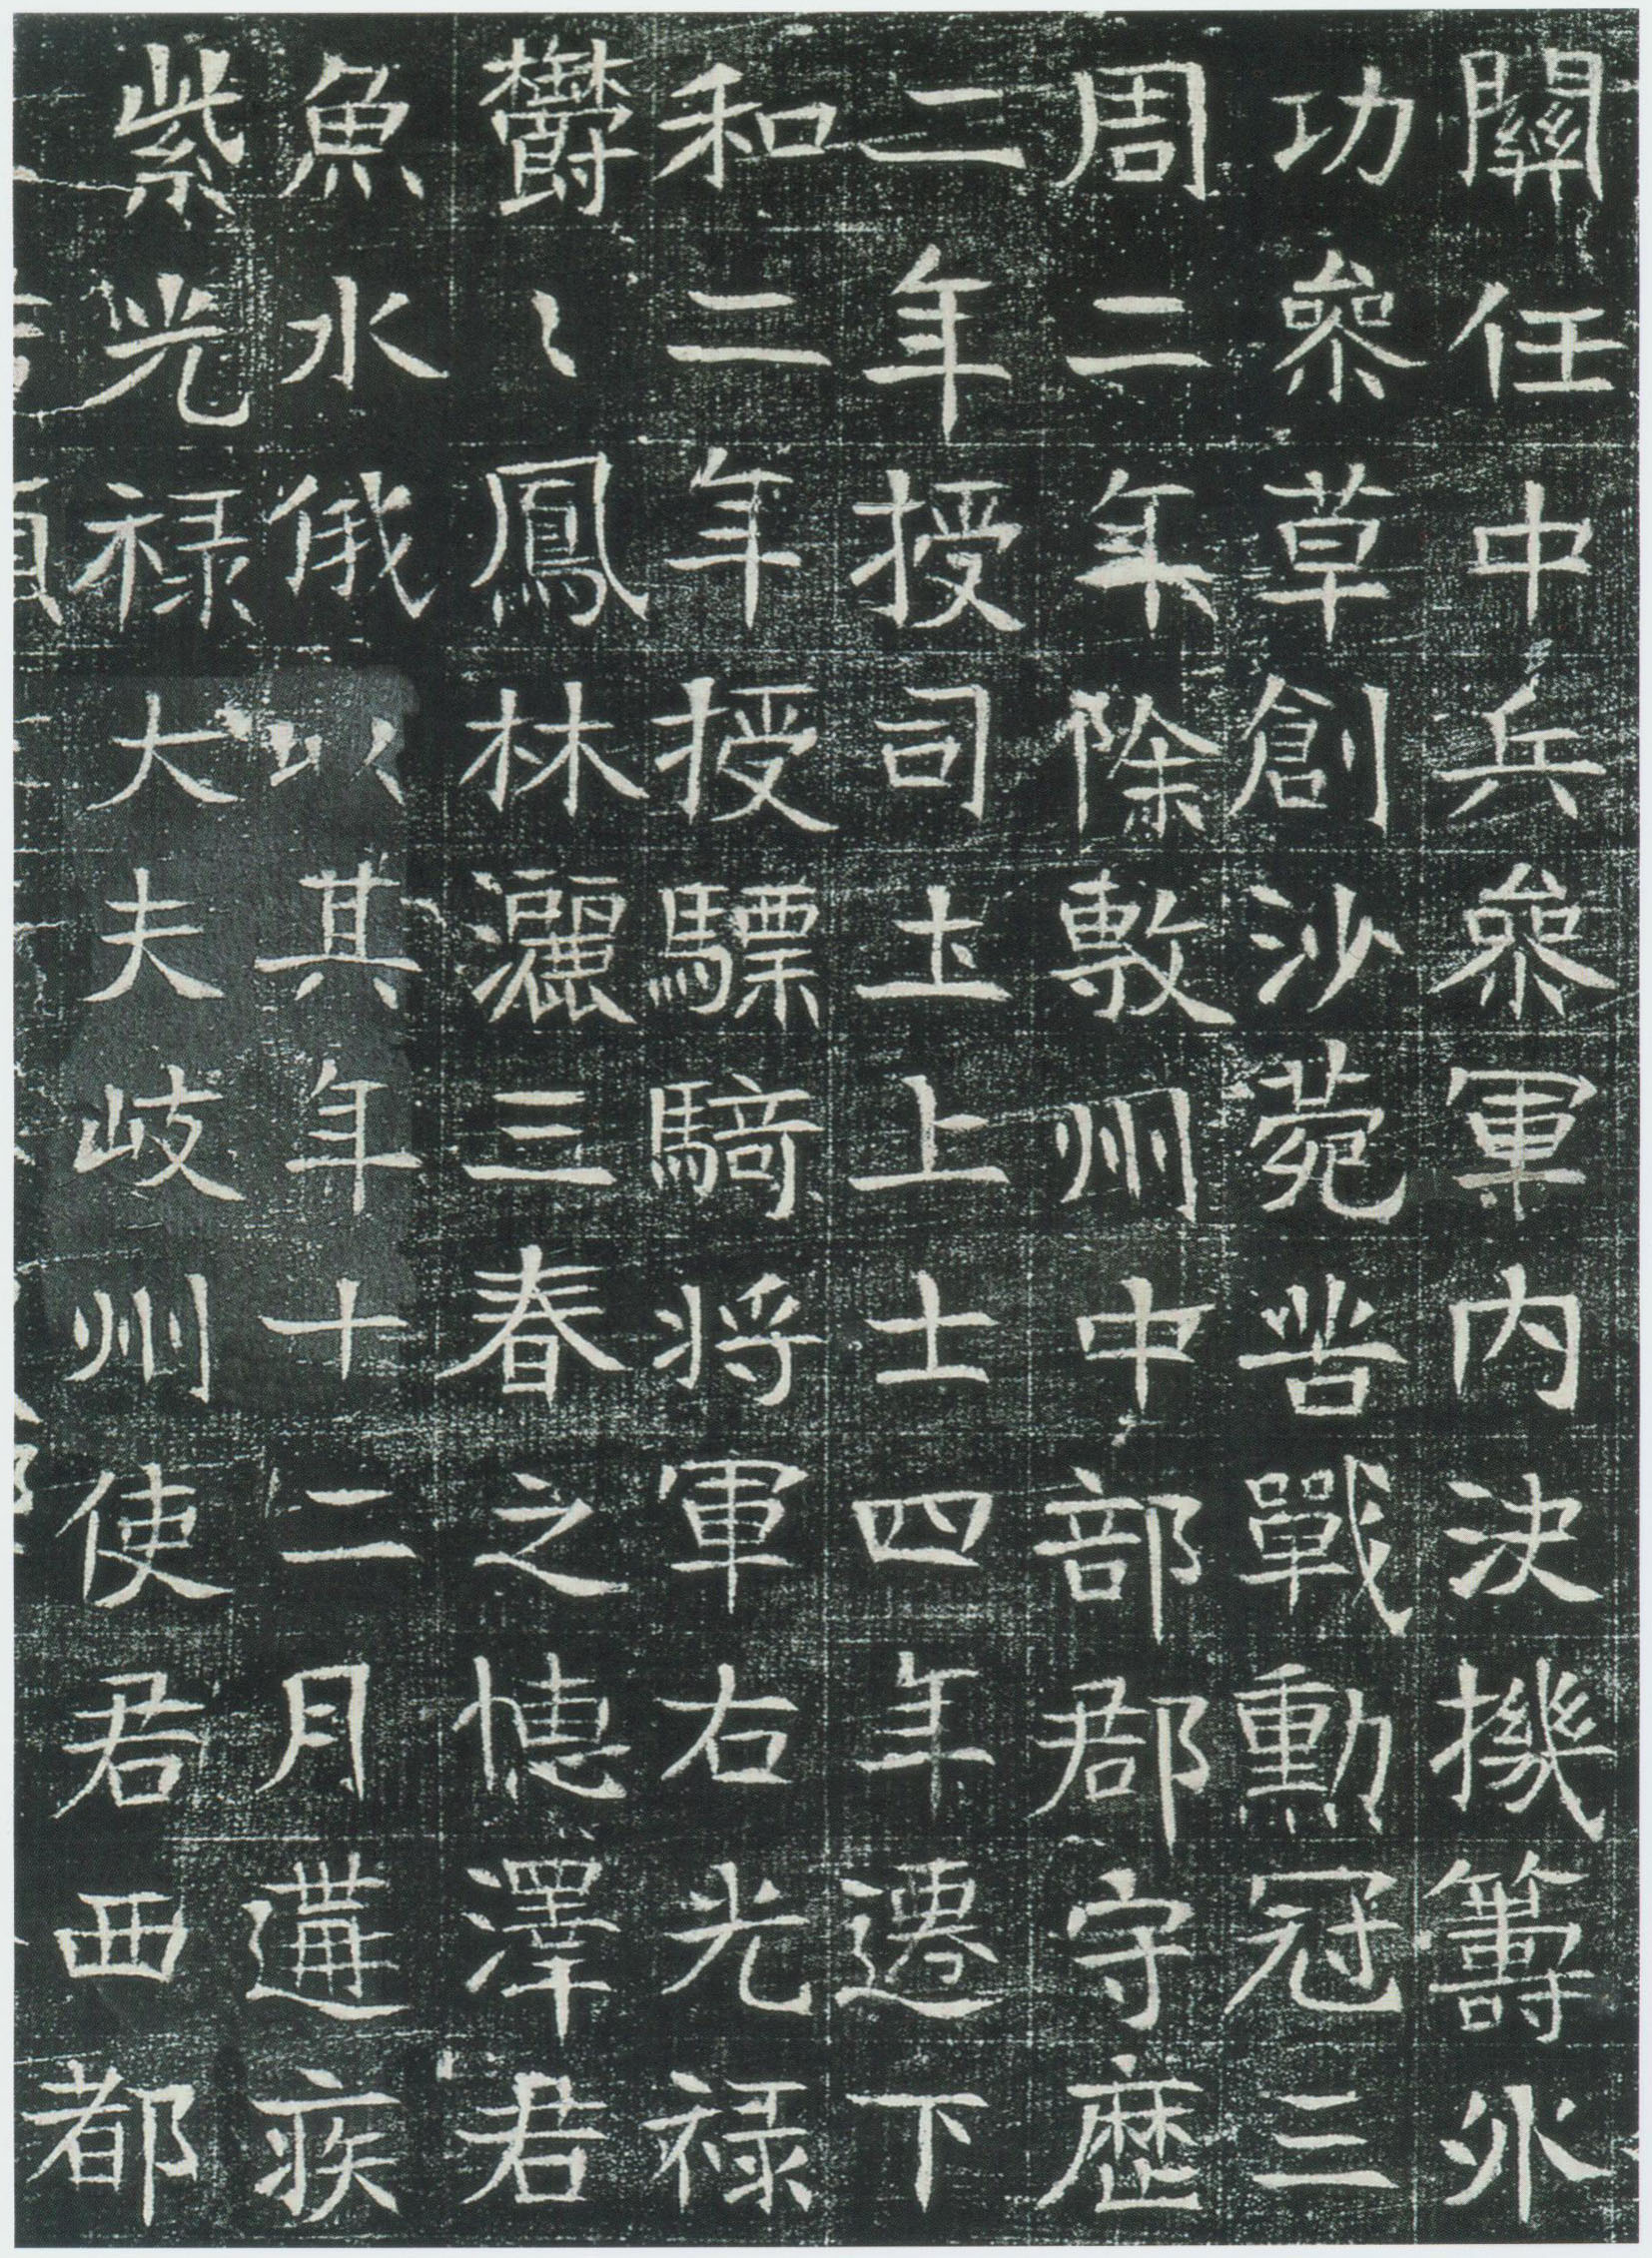 關任中兵參軍內決機籌外
功參草創沙菀苦戰勳冠三
周二年除敷州中部郡守歷
二年授司土上士四年遷下
和二年授驃騎将軍右光禄
鬱〻鳳林灑三春之憓澤君
魚水俄以其年十二月遘疾
紫光禄大夫岐州使君西都